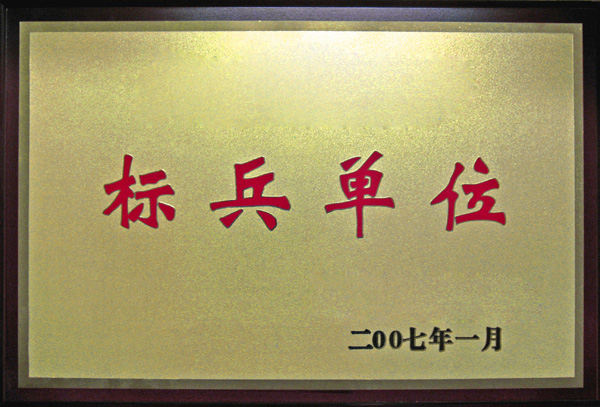 标兵单位
二00七年一月